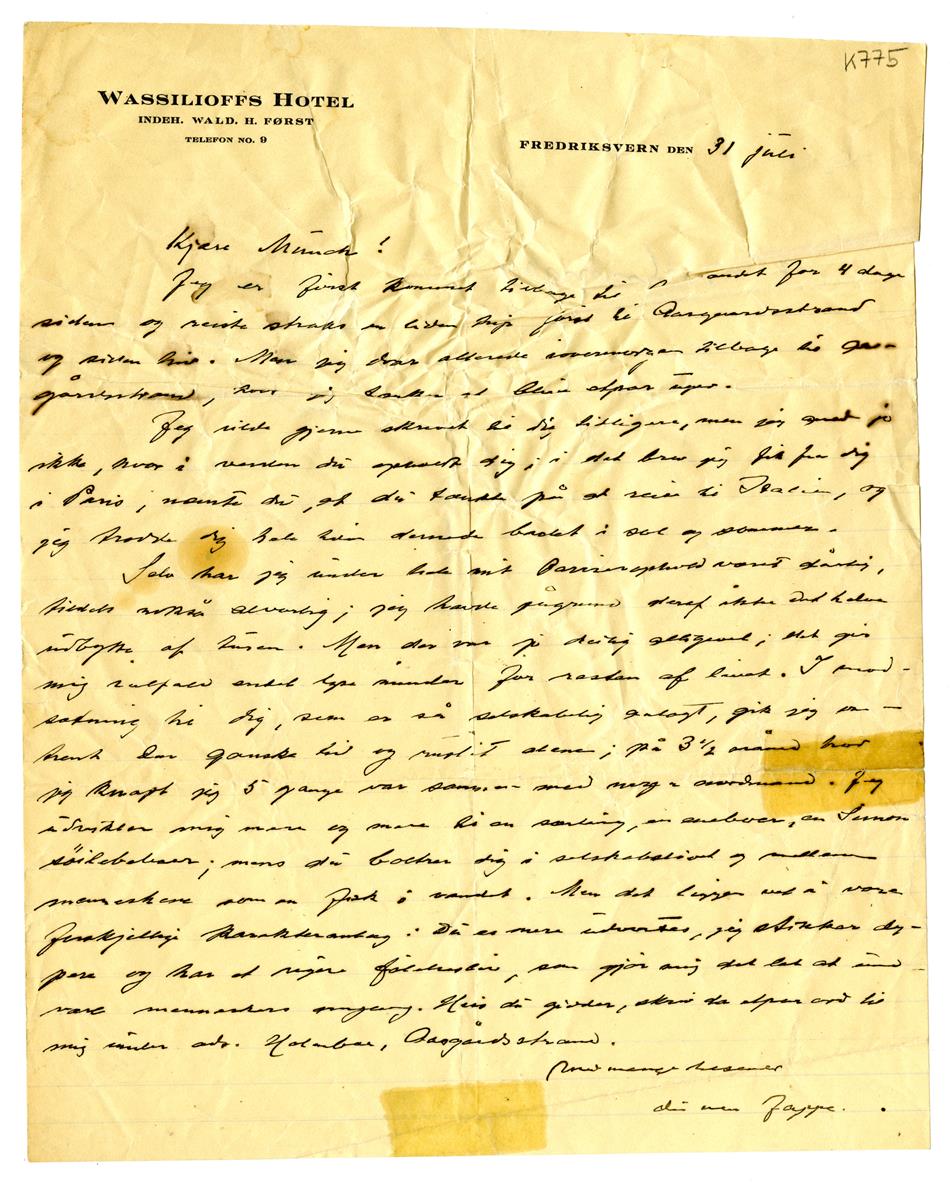 K775
WASSILIOFFS HOTEL
INDEH. WALD. H. FØRST
TELEFON NO. 9
FREDRIKSVERN DEN 31 juli
Kjære Munch!
Jeg er først kommet tilbage til andet for 4 dage
siden og reiste straks en liden trip først til Aasgaardsstrand
og siden hid. Men jeg drar allerede iovermorgen tilbage til Aas-
gårdsstrand, hvor jeg tænker at blive etpar uger.
Jeg vilde gjerne skrevet til dig tidligere, men jeg jo
ikke, hvor i verden du opholdt dig; i det brev jeg fik fra dig
i Paris, nævnte du, at du tænkte på at reise til Italien, og
jeg trodde dig hele tiden dernede badet i sol og sommer.
Selv har jeg under hele mit Pariserophold været dårlig,
tildels nokså alvorlig; jeg havde pågrund deraf ikke det hele
udbytte af turen. Men der var jo deilig alligevel; det gir
mig ialfald endel lyse minder for resten af livet. I mod-
sætning til dig, som er så selskabelig anlagt, gik jeg om-
trent der ganske tid og alene; på 3 1/2 måned tror
jeg knapt jeg 5 gange var sammen med nogen nordmænd. Jeg
udvikler mig mere og mere til en særling, en eneboer, en Simon
Søilehelgen; mens du boltrer dig i selskabslivet og mellem
menneskene som en fisk i vandet. Men det ligger vel i vore
forskjellige karakteranlæg: Du er mere udvortes, jeg stikker dy-
pere og har et rigere følelsesliv, som gjør mig det let at und-
være menneskers omgang. Hvis du gider, skriv da etpar ord til
mig under adr. Holmboe, Aasgårdsstrand.
Med mange hilsener
din ven Jappe.